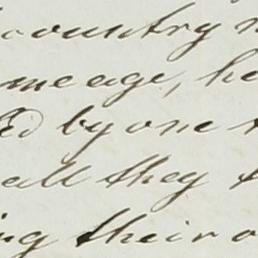 country
me age, he
ed by one
all they
ing their o